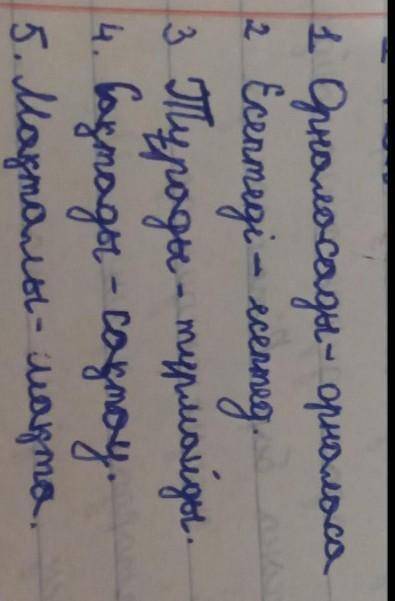 1 Орналасады - орналаса
2 Есептеді - есептед.
3 Тұрады - тұрмайды.
4. Сақтады - сақтау.
5. Мақталы - мақта.